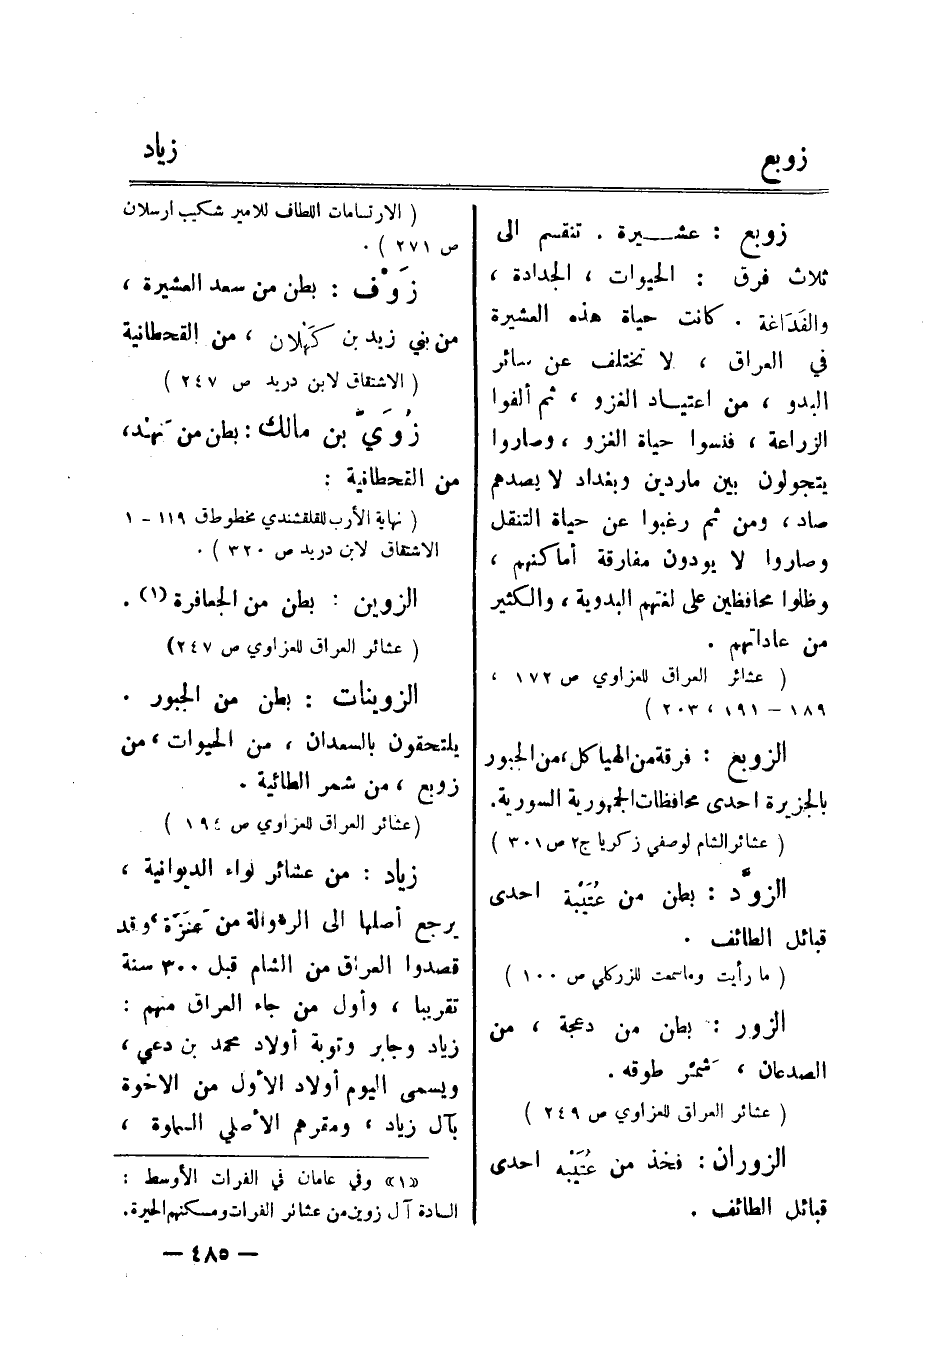 زوبع
زياد
زوبع : عشيرة . تنقسم الى
ثلاث فرق : الحيوات ، الجدادة ،
والفَدَاغة . كانت حياة هذه العشيرة
في العراق ، لا تختلف عن سائر
البدو ، من اعتياد الغزو ، ثم ألفوا
الزراعة ، فنسوا حياة الغزو ، وصاروا
يتجولون بين ماردين وبغداد لا يصدهم
صاد ، ومن ثم رغبوا عن حياة التنقل
وصاروا لا يودون مفارقة أماكنهم ،
وظلوا محافظين على لغتهم البدوية ، والكثير
من عاداتهم .
( عشائر العراق للعزاوي ص ١٧٢ ،
١٨٩ – ١٩١ ، ٢٠٣ )
الزوبع : فرقة من الهياكل ، من الجبور
بالجزيرة احدى محافظات الجمهورية السورية .
( عشائر الشام لوصفي زكريا ج٢ ص ٣٠١ )
الزوّد : بطن من عُتَيْبَة احدى
قبائل الطائف .
( ما رأيت وما سمعت للزركلي ص ١٠٠ )
الزور : بطن من دعجة ، من
الصدعان ، شَمَّر طوقه .
( عشائر العراق للعزاوي ص ٢٤٩ )
الزوران : فخذ من عُتَيْبه احدى
قبائل الطائف .
( الارتسامات اللطاف للامير شكيب ارسلان
ص ٢٧١ ) .
زَوْف : بطن من سعد العشيرة ،
من بني زيد بن كَهْلان ، من القحطانية
( الاشتقاق لابن دريد ص ٢٤٧ )
زُوَيّ بن مالك : بطن من نَهْد ،
من القحطانية :
( نهاية الأرب للقلقشندي مخطوط ق ١١٩ – ١
الاشتقاق لابن دريد ص ٣٢٠ ) .
الزوين : بطن من الجعافرة (١) .
( عشائر العراق للعزاوي ص ٢٤٧ )
الزوينات : بطن من الجبور .
يلتحقون بالسعدان ، من الحيوات ، من
زوبع ، من شمر الطائية .
( عشائر العراق للعزاوي ص ١٩٤ )
زياد : من عشائر لواء الديوانية ،
يرجع أصلها الى الرولة من عَنَزَة ، وقد
قصدوا العراق من الشام قبل ٣٠٠ سنة
تقريبا ، وأول من جاء العراق منهم :
زياد وجابر وتوبة أولاد محمد بن دعي ،
ويسمى اليوم أولاد الأول من الاخوة
بآل زياد ، ومقرهم الأصلي السماوة ،
«١» وفي عامان في الفرات الأوسط :
السادة آل زوين من عشائر الفرات ومسكنهم الحيرة .
— ٤٨٥ —